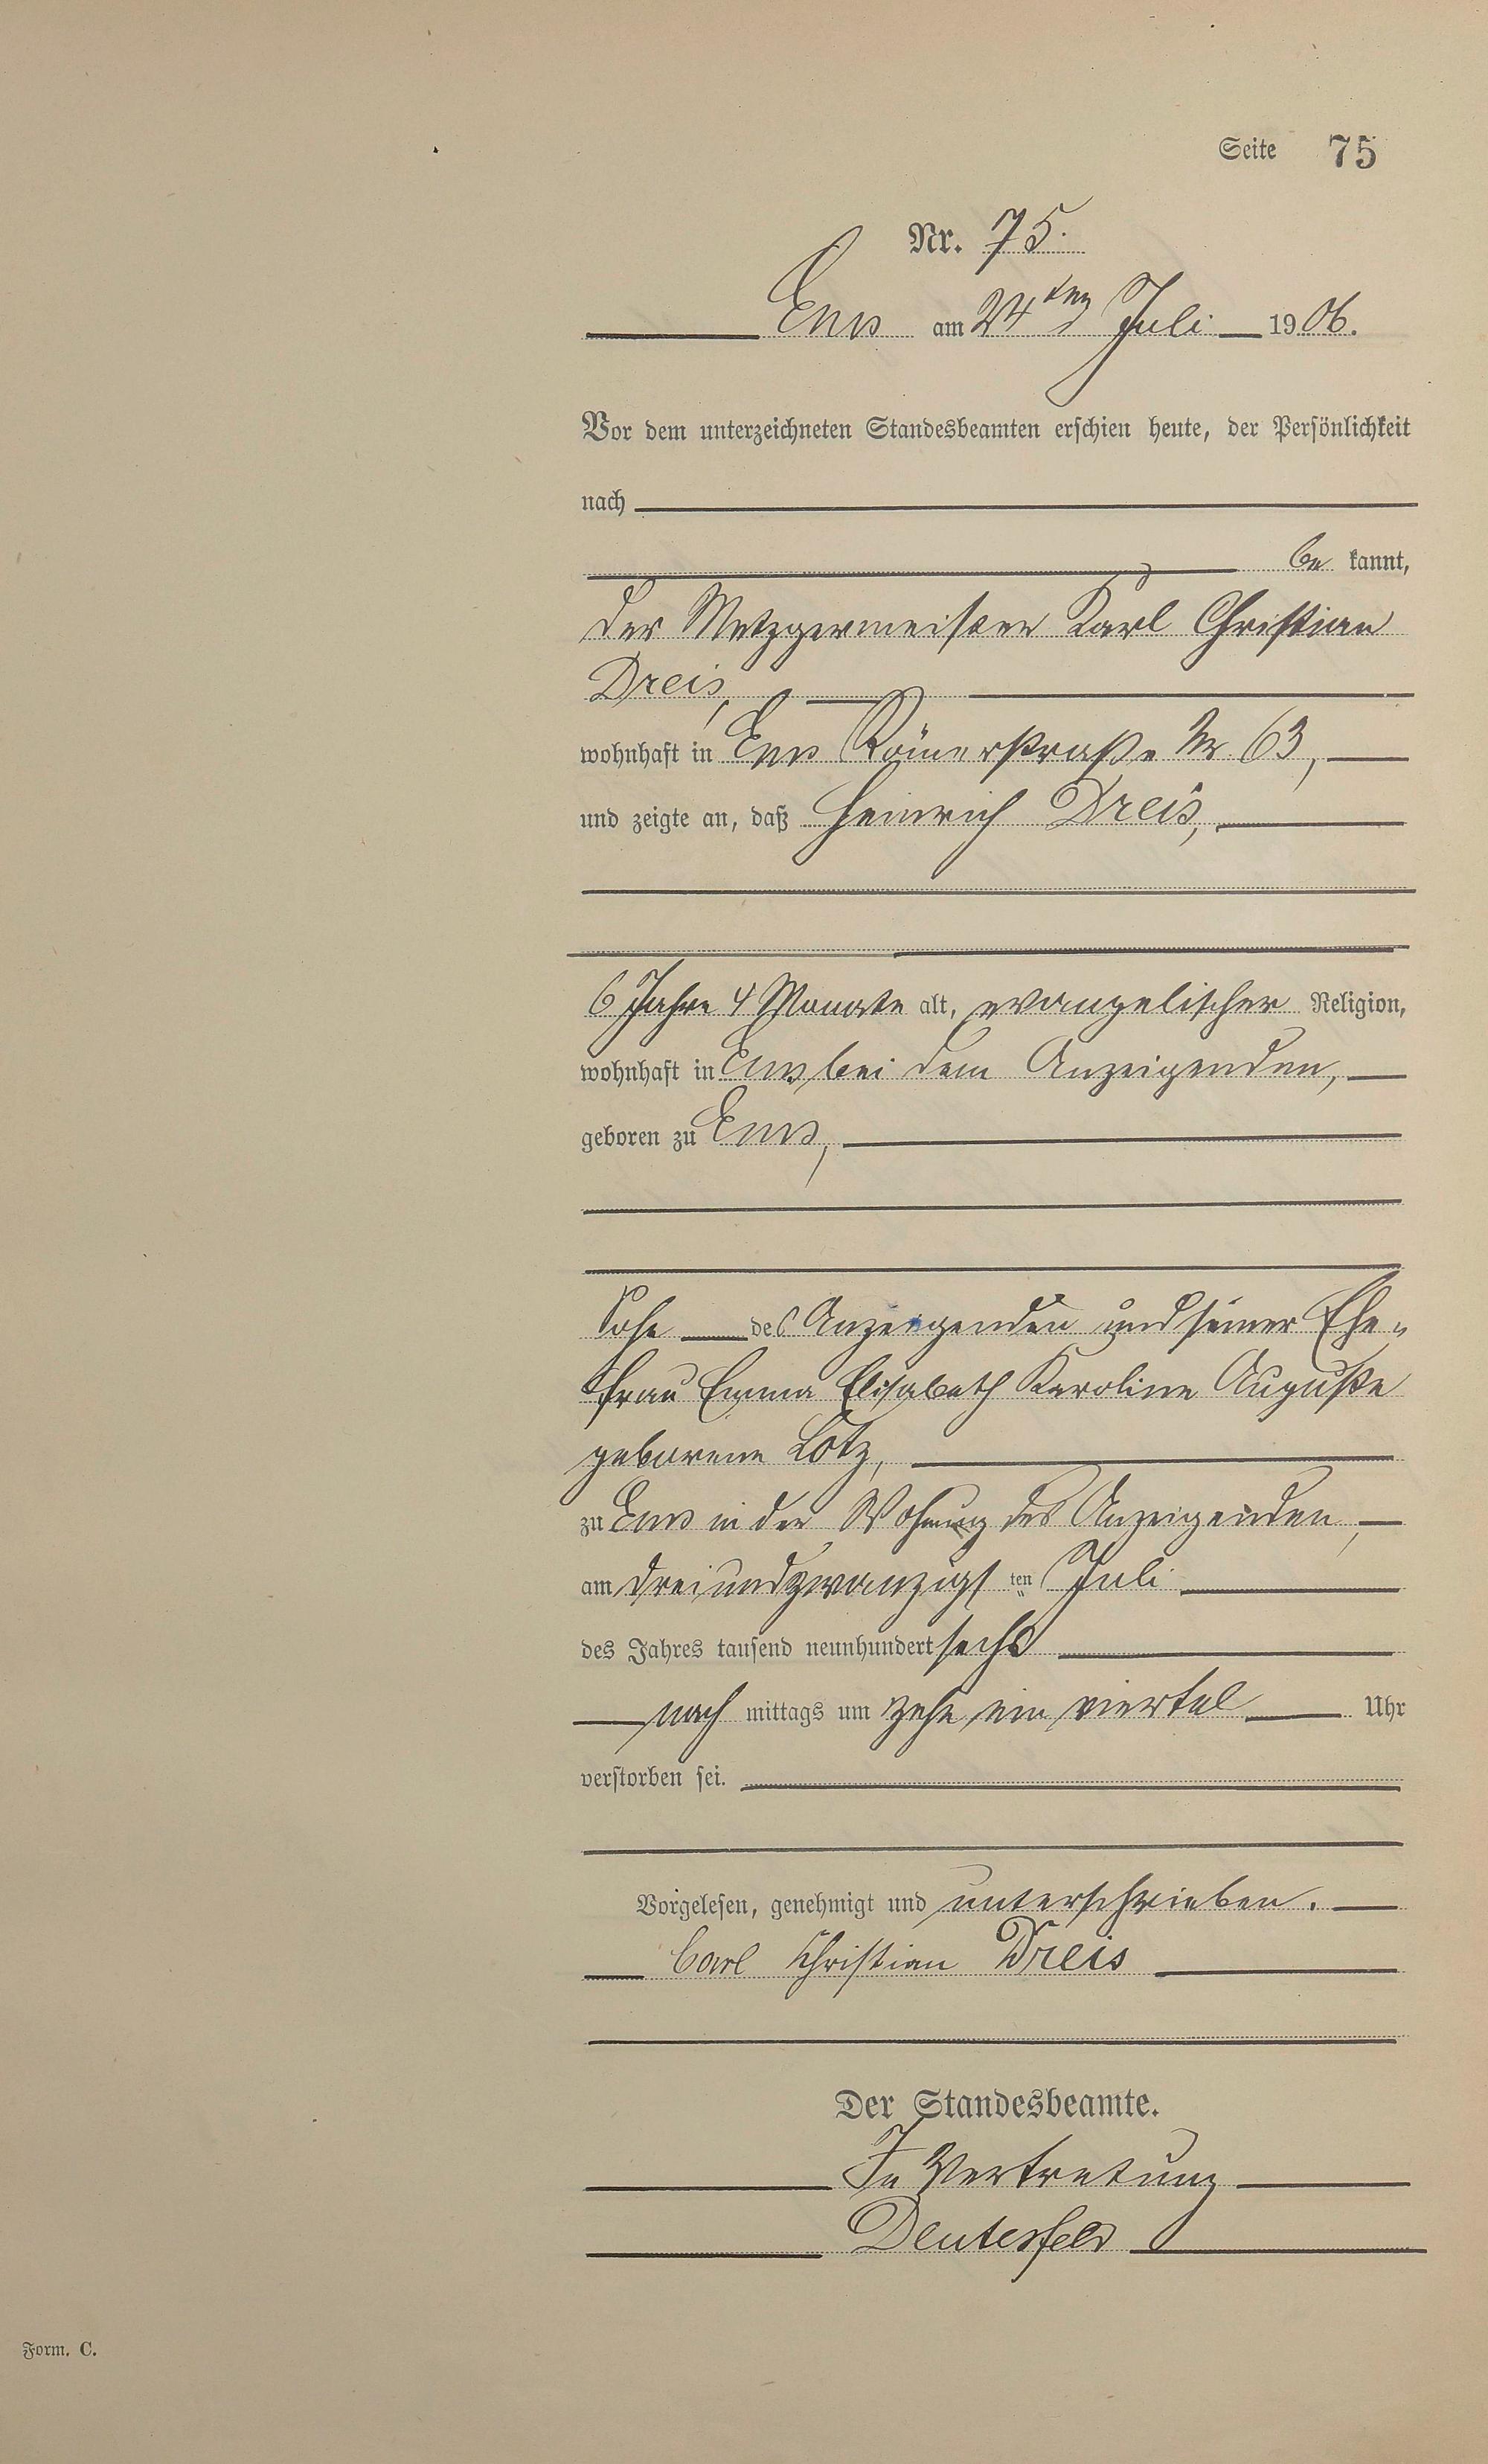 Seite 75
Nr. 75.
Ems am 24ten Juli 1906.
Vor dem unterzeichneten Standesbeamten erschien heute, der Persönlichkeit
nach
be kannt,
der Metzgermeister Karl Christian
Dreis,
wohnhaft in Ems Römerstraße Nr. 63,
und zeigte an, daß Heinrich Dreis,
6 Jahre 4 Monate alt, evangelischer Religion,
wohnhaft in Ems bei dem Anzeigenden,
geboren zu Ems,
Sohn des Anzeigenden und seiner Ehe-
frau Emma Elisabeth Karoline Auguste
geborene Lotz,
zu Ems in der Wohnung des Anzeigenden,
am dreiundzwanzigsten Juli
des Jahres tausend neunhundert sechs
nach mittags um zehn ein viertel Uhr
verstorben sei.
Vorgelesen, genehmigt und unterschrieben.
Carl Christian Dreis
Der Standesbeamte.
In Vertretung
Deutesfeld
Form. C.